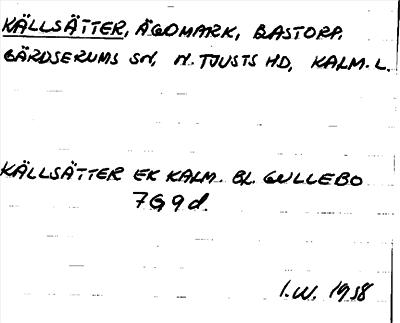 KÄLLSÄTTER, ÄGOMARK, BASTORP,
GÄRDSERUMS SN, N. TJUSTS HD, KALM. L.
KÄLLSÄTTER EK KALM. BL. GULLEBO
7G9d.
I.W. 1958